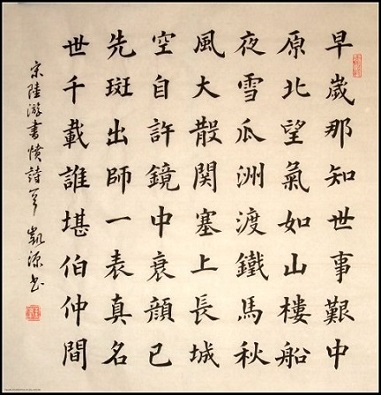 早歲那知世事艱中
原北望氣如山樓船
夜雪瓜洲渡鐵馬秋
風大散関塞上長城
空自許鏡中衰顏已
先斑出師一表真名
世千載誰堪伯仲間
宋陸游書憤詩一首 凱源书